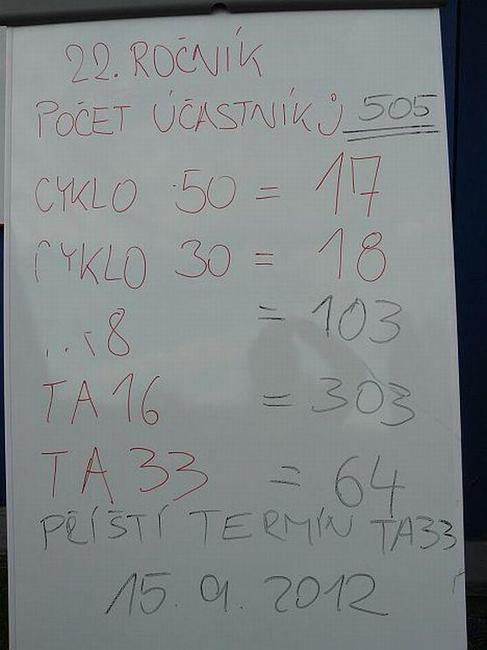 22. ROČNÍK
POČET ÚČASTNÍKŮ 505
CYKLO 50 = 17
CYKLO 30 = 18
8 = 103
TA 16 = 303
TA 33 = 64
PŘÍŠTÍ TERMÍN TA33
15. 9. 2012